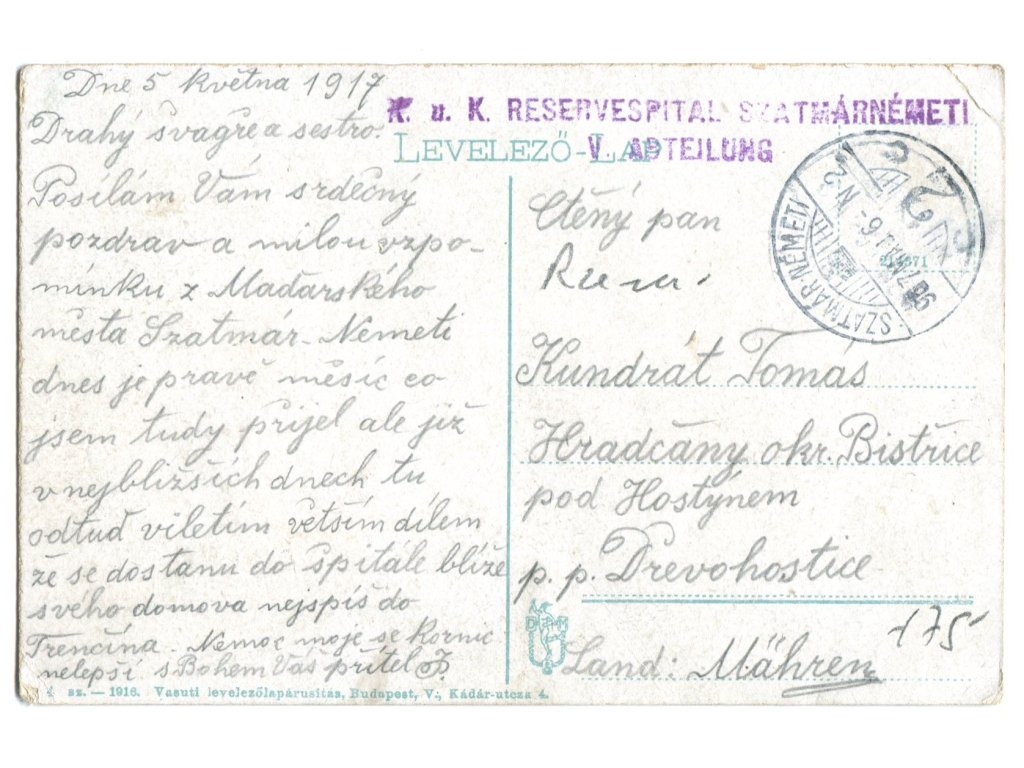 Dne 5 května 1917
Drahý švagře a sestro.
Posílám Vám srdečný
pozdrav a milou vzpo-
mínku z Maďarského
města Szatmár-Nemeti
dnes je pravě měsíc co
jsem tudy přijel ale již
v nejbližších dnech tu
odtuď viletím větším dílem
že se dostanu do špitále blíže
svého domova nejspíš do
Trenčína. Nemoc moje se
nelepší s Bohem Váš přítel
K. u. K. RESERVESPITAL SZATMÁRNÉMETI
V. ABTEILUNG
LEVELEZŐ-LAP
SZATMÁRNÉMETI
Ctěný pan
Kundrát Tomás
Hradčány okr. Bistřice
pod Hostýnem
p. p. Dřevohostice
175
Land: Mähren
sz. — 1916. Vasuti levelezőlapárusitás, Budapest, V., Kádár-utcza 4.